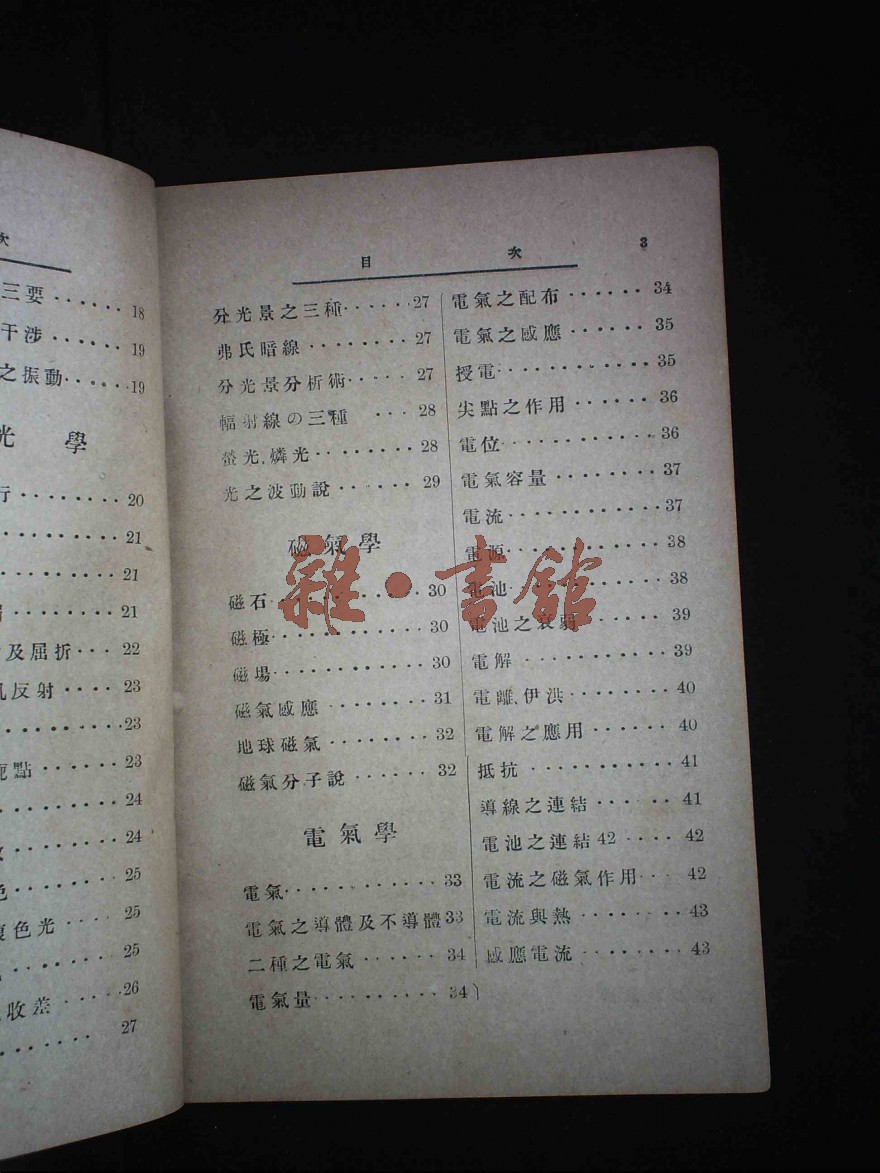 次
三要 ······ 18
干涉 ······ 19
之振動 ···· 19
光學
行 ········ 20
21
21
21
及屈折 ··· 22
反射 ···· 23
23
點 ······· 23
24
24
色 ······ 25
復色光 ··· 25
25
收差 ····· 26
27
目 次 3
分光景之三種 ······ 27
弗氏暗線 ········ 27
分光景分析術 ····· 27
輻射線の三種 ··· 28
螢光,燐光 ······· 28
光之波動說 ······ 29
磁氣學
磁石 ··········· 30
磁極 ··········· 30
磁場 ·········· 30
磁氣感應 ······· 31
地球磁氣 ········ 32
磁氣分子說 ······ 32
電氣學
電氣 ··········· 33
電氣之導體及不導體 33
二種之電氣 ······ 34
電氣量 ·········· 34
電氣之配布 ······ 34
電氣之感應 ······ 35
授電 ··········· 35
尖點之作用 ······ 36
電位 ··········· 36
電氣容量 ········ 37
電流 ··········· 37
電源 ··········· 38
電池 ··········· 38
電池之衰弱 ······ 39
電解 ·········· 39
電離,伊洪 ······· 40
電解之應用 ······ 40
抵抗 ·········· 41
導線之連結 ······ 41
電池之連結 42 ···· 42
電流之磁氣作用 ··· 42
電流與熱 ······· 43
感應電流 ········ 43
雜·書館